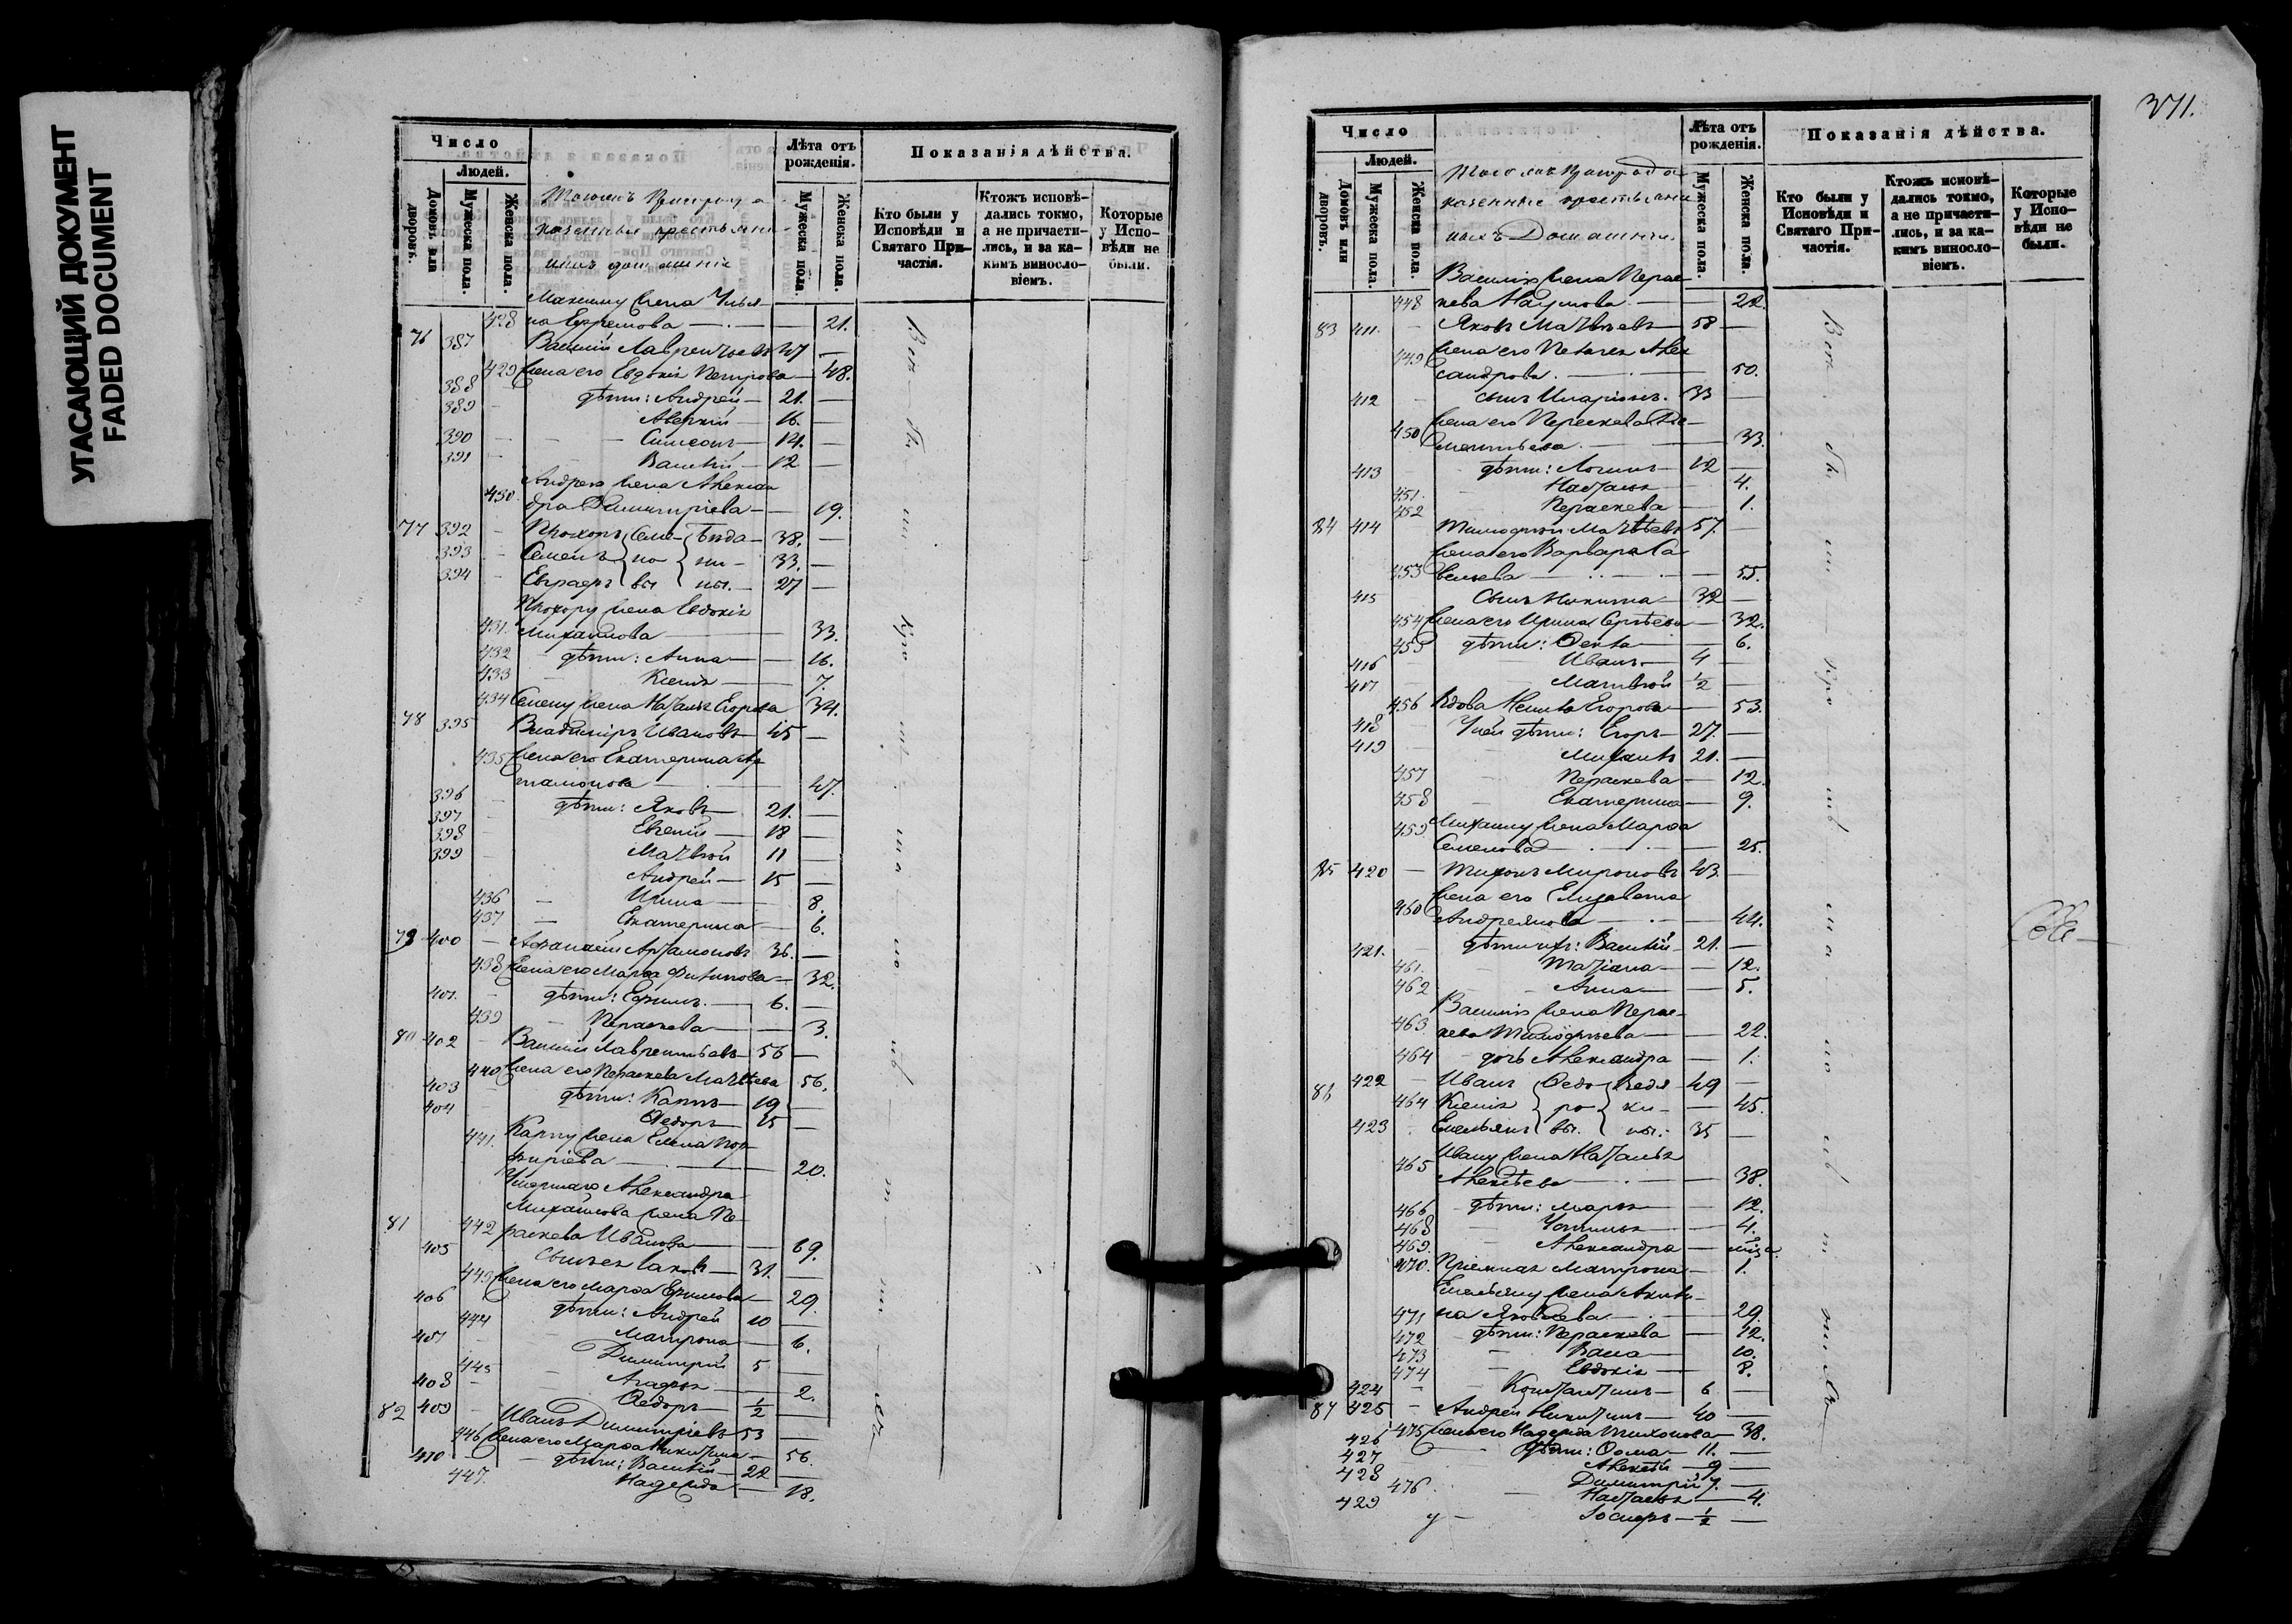 УГАСАЮЩИЙ ДОКУМЕНТ
FADED DOCUMENT
Число
Людей.
Домовъ или дворовъ.
Мужеска пола.
Женска пола.
казенные крестьяне
Лѣта отъ рожденія.
Мужеска пола.
Женска пола.
Показанія дѣйства.
Кто были у Исповѣди и Святаго Причастія.
Ктожъ исповѣдались токмо, а не причастились, и за какимъ винословіемъ.
Которые у Исповѣди не были.
428 на Ефремова — 21.
76 387 Василій Лаврентьевъ 47 —
429 жена его Евдокія Петрова — 48.
388 дѣти: Андрей — 21. —
389 Аверкій — 16. —
390 Симеонъ — 14. —
391 Василій — 12 —
Андрея жена Алексан
430. дра Димитріева — 19.
77 392 Прохоръ — 38. —
393 Семенъ — 33. —
394 Евграфъ — 27 —
Прохору жена Евдокія
431. Михайлова — 33.
432 дѣти: Анна — 16.
433 Ксенія — 7.
434 Семену жена Наталья Егорова 34.
78 395 Владиміръ Ивановъ 45 —
435 жена его Екатерина Ар
тамонова — 47.
396 дѣти: Яковъ 21. —
397 Евгеній — 18 —
398 Матвѣй 11 —
399 Андрей — 15 —
436 Ирина — 8.
437 Екатерина — 6.
79 400 Аѳанасій Артамоновъ 36. —
438 жена его Марѳа Филипова — 32.
401. дѣти: Ефимъ. — 6. —
439 Пераскева — 3.
80 402 Василій Лаврентьевъ 56 —
440 жена его Пераскева Матвѣева 56.
403 дѣти: Карпъ — 19 —
404 Ѳедоръ 15 —
441. Карпу жена Елена Пор
фиріева — 20.
Умершаго Александра
Михайлова жена Пе
81 442 раскева Иванова — 69.
405 сынъ ея Іаковъ — 31. —
443 жена его Марѳа Ефимова — 29.
406 дѣти: Андрей 10 —
444 Матрона — 6.
407 Димитрій 5 —
445 Агафья — 2.
408 Ѳедоръ — ½ —
82 409 Иванъ Димитріевъ 53 —
446 жена его Марѳа Никитина — 56.
410 дѣти: Василій — 22 —
447. Надежда — 18.
371.
Число
Людей.
Домовъ или дворовъ.
Мужеска пола.
Женска пола.
казенные крестьяне
Лѣта отъ рожденія.
Мужеска пола.
Женска пола.
Показанія дѣйства.
Кто были у Исповѣди и Святаго Причастія.
Ктожъ исповѣдались токмо, а не причастились, и за какимъ винословіемъ.
Которые у Исповѣди не были.
Василія жена Перас
448 кева Наумова — 22.
83 411. Яковъ Матвѣевъ — 58 —
449 жена его Наталья Алек
сандрова. — 50.
412 сынъ Иларіонъ. 33 —
450 жена его Пераскева
— 33.
413 дѣти: Логинъ — 12 —
451. Наталья — 4.
452 Пераскева — 1.
84 414 Тимофей Матвѣевъ 57. —
жена его Варвара Са
453 вельева — 55.
415 сынъ Никита — 32 —
454 жена его Ирина Сергѣева — 32.
455 дѣти: Ѳекла — 6.
416 Иванъ — 4 —
417 Матвѣй ½ —
456 Вдова Егорова — 53.
418 У ней дѣти: Егоръ — 27. —
419 Михаилъ 21. —
457 Пераскева — 12.
458 Екатерина — 9.
459. Михаилу жена Марѳа
Семенова — 25.
85 420 Тихонъ Мироновъ 43. —
жена его Елизавета
460 Андреянова — 44.
421. дѣти ихъ: Василій — 21. —
461. Татіана — 12.
462 Анна — 5.
Василія жена Перас-
463. кева Тимофѣева — 22.
464 дочь Александра — 1.
86 422 Иванъ — 49 —
464 Ксенія — 45.
423 Емельянъ 35 —
Ивану жена Наталья
465 Алексѣева — 38.
466 дѣти: Марья — 12.
468 Устинья — 4.
469. Александра —
470. Пріемная Матрона — 1.
Емельяну жена Акили-
471 на Яковлева — 29.
472 дѣти: Пераскева — 12.
473 — 10.
474 Евдокія — 8.
424 Константинъ — 6 —
87 425 Андрей Никитинъ — 40 —
475 жена его Надежда Тихонова — 38.
426 дѣти: Ѳома — 11. —
427 Алексѣй — 9 —
428 Димитрій 7. —
476 Наталья — 4.
429 Іосифъ — ½ —